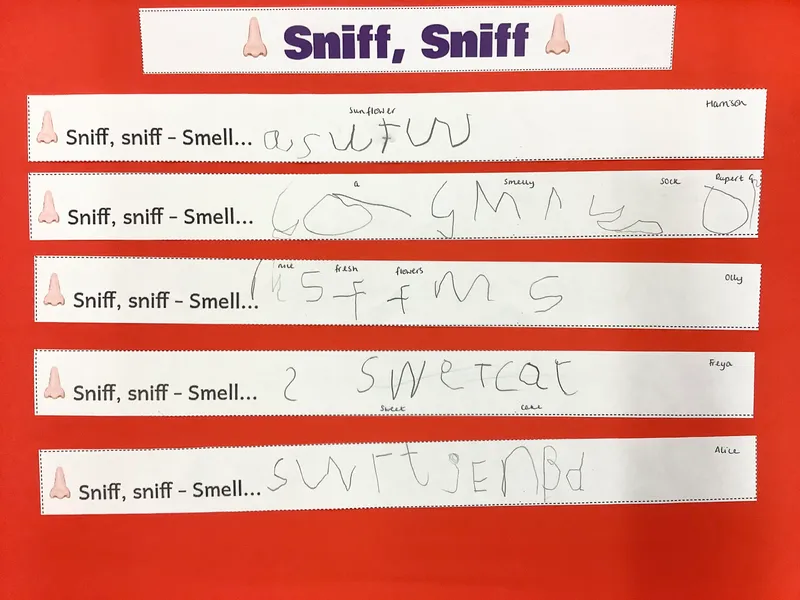 Sniff, Sniff
sunflower Harrison
Sniff, sniff - Smell... a s u f w
a smelly sock Rupert G
Sniff, sniff - Smell...
nice fresh flowers Olly
Sniff, sniff - Smell... S f f m S
Freya
Sniff, sniff - Smell... 2 swetcat
sweet cake
Alice
Sniff, sniff - Smell...